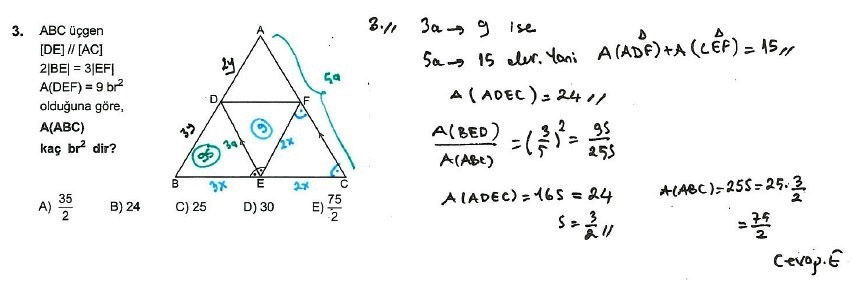 3. ABC üçgen
[DE] // [AC]
2|BE| = 3|EF|
A(DEF) = 9 br²
olduğuna göre,
A(ABC)
kaç br² dir?
A) 35/2 B) 24 C) 25 D) 30 E) 75/2
A
2y
5a
D
F
3y
9
3a
2x
9S
B
3x
E
2x
C
3.// 3a → 9 ise
5a → 15 olur. Yani A(ADF) + A(CEF) = 15//
A(ADEC) = 24//
A(BED)/A(ABC) = (3/5)² = 9S/25S
A(ADEC) = 16S = 24
S = 3/2//
A(ABC) = 25S = 25·3/2
= 75/2
Cevap. E